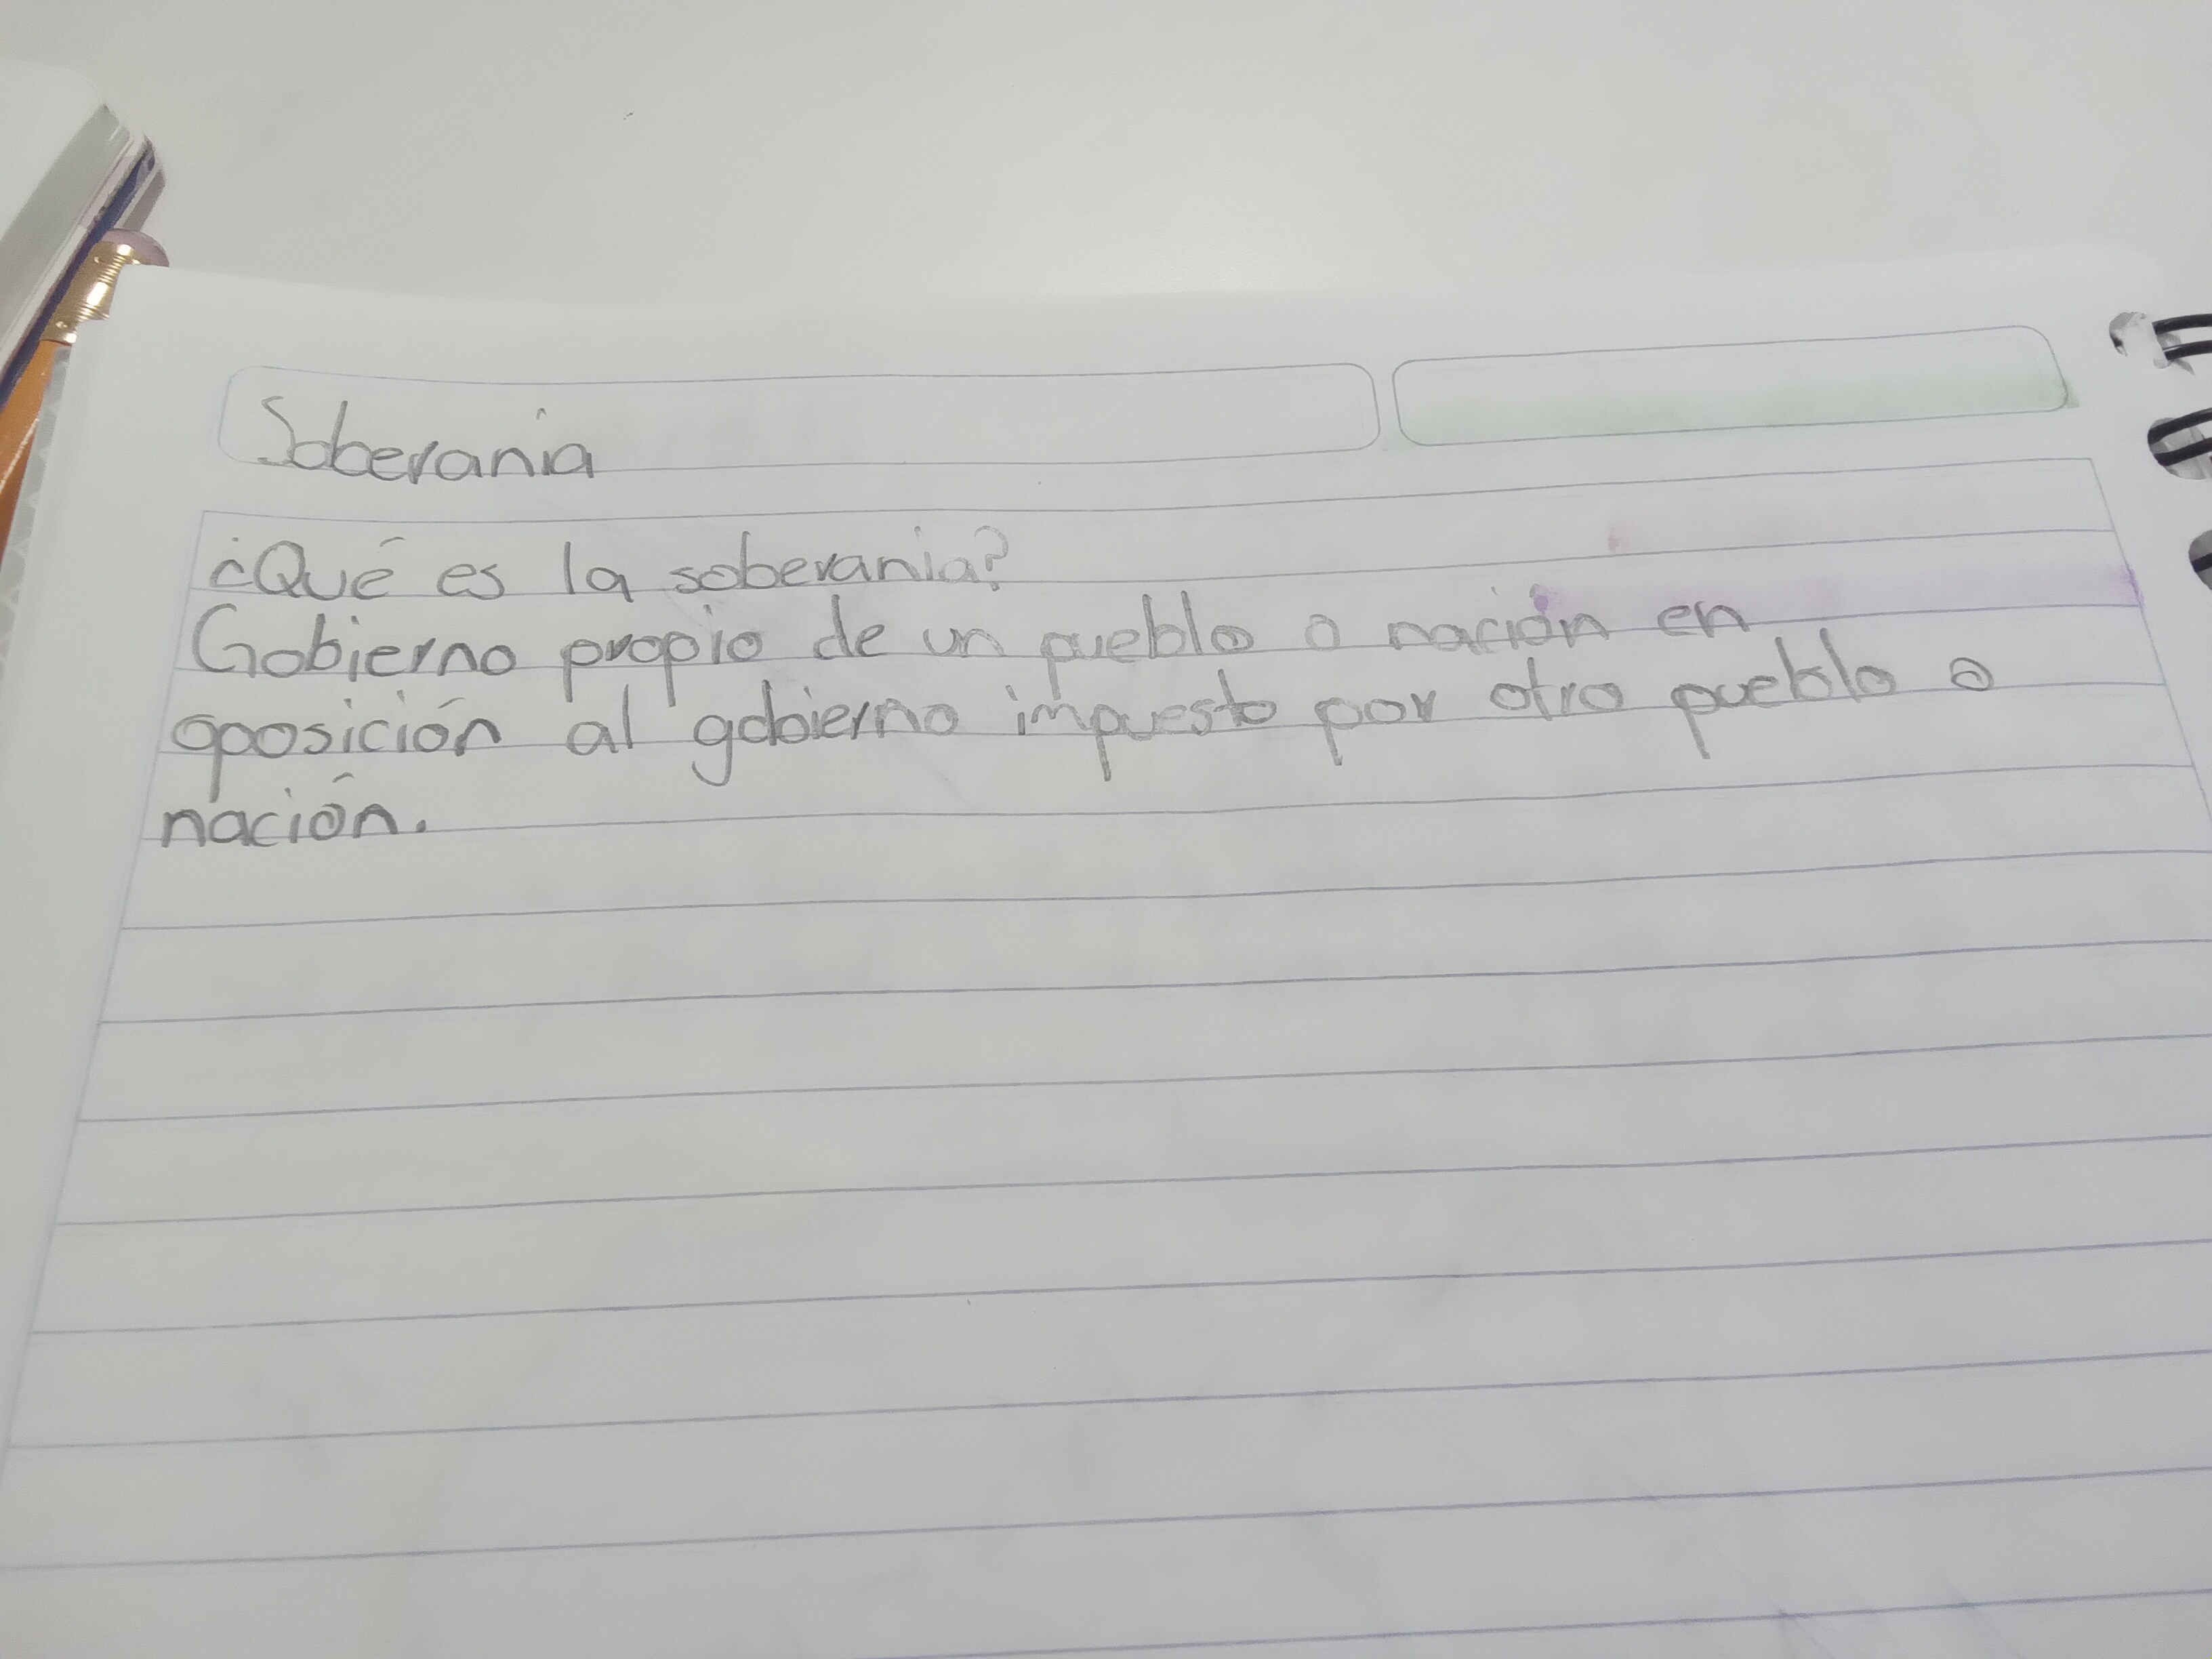 Soberanía
¿Qué es la soberania?
Gobierno propio de un pueblo o nación en
oposición al gobierno impuesto por otro pueblo o
nación.